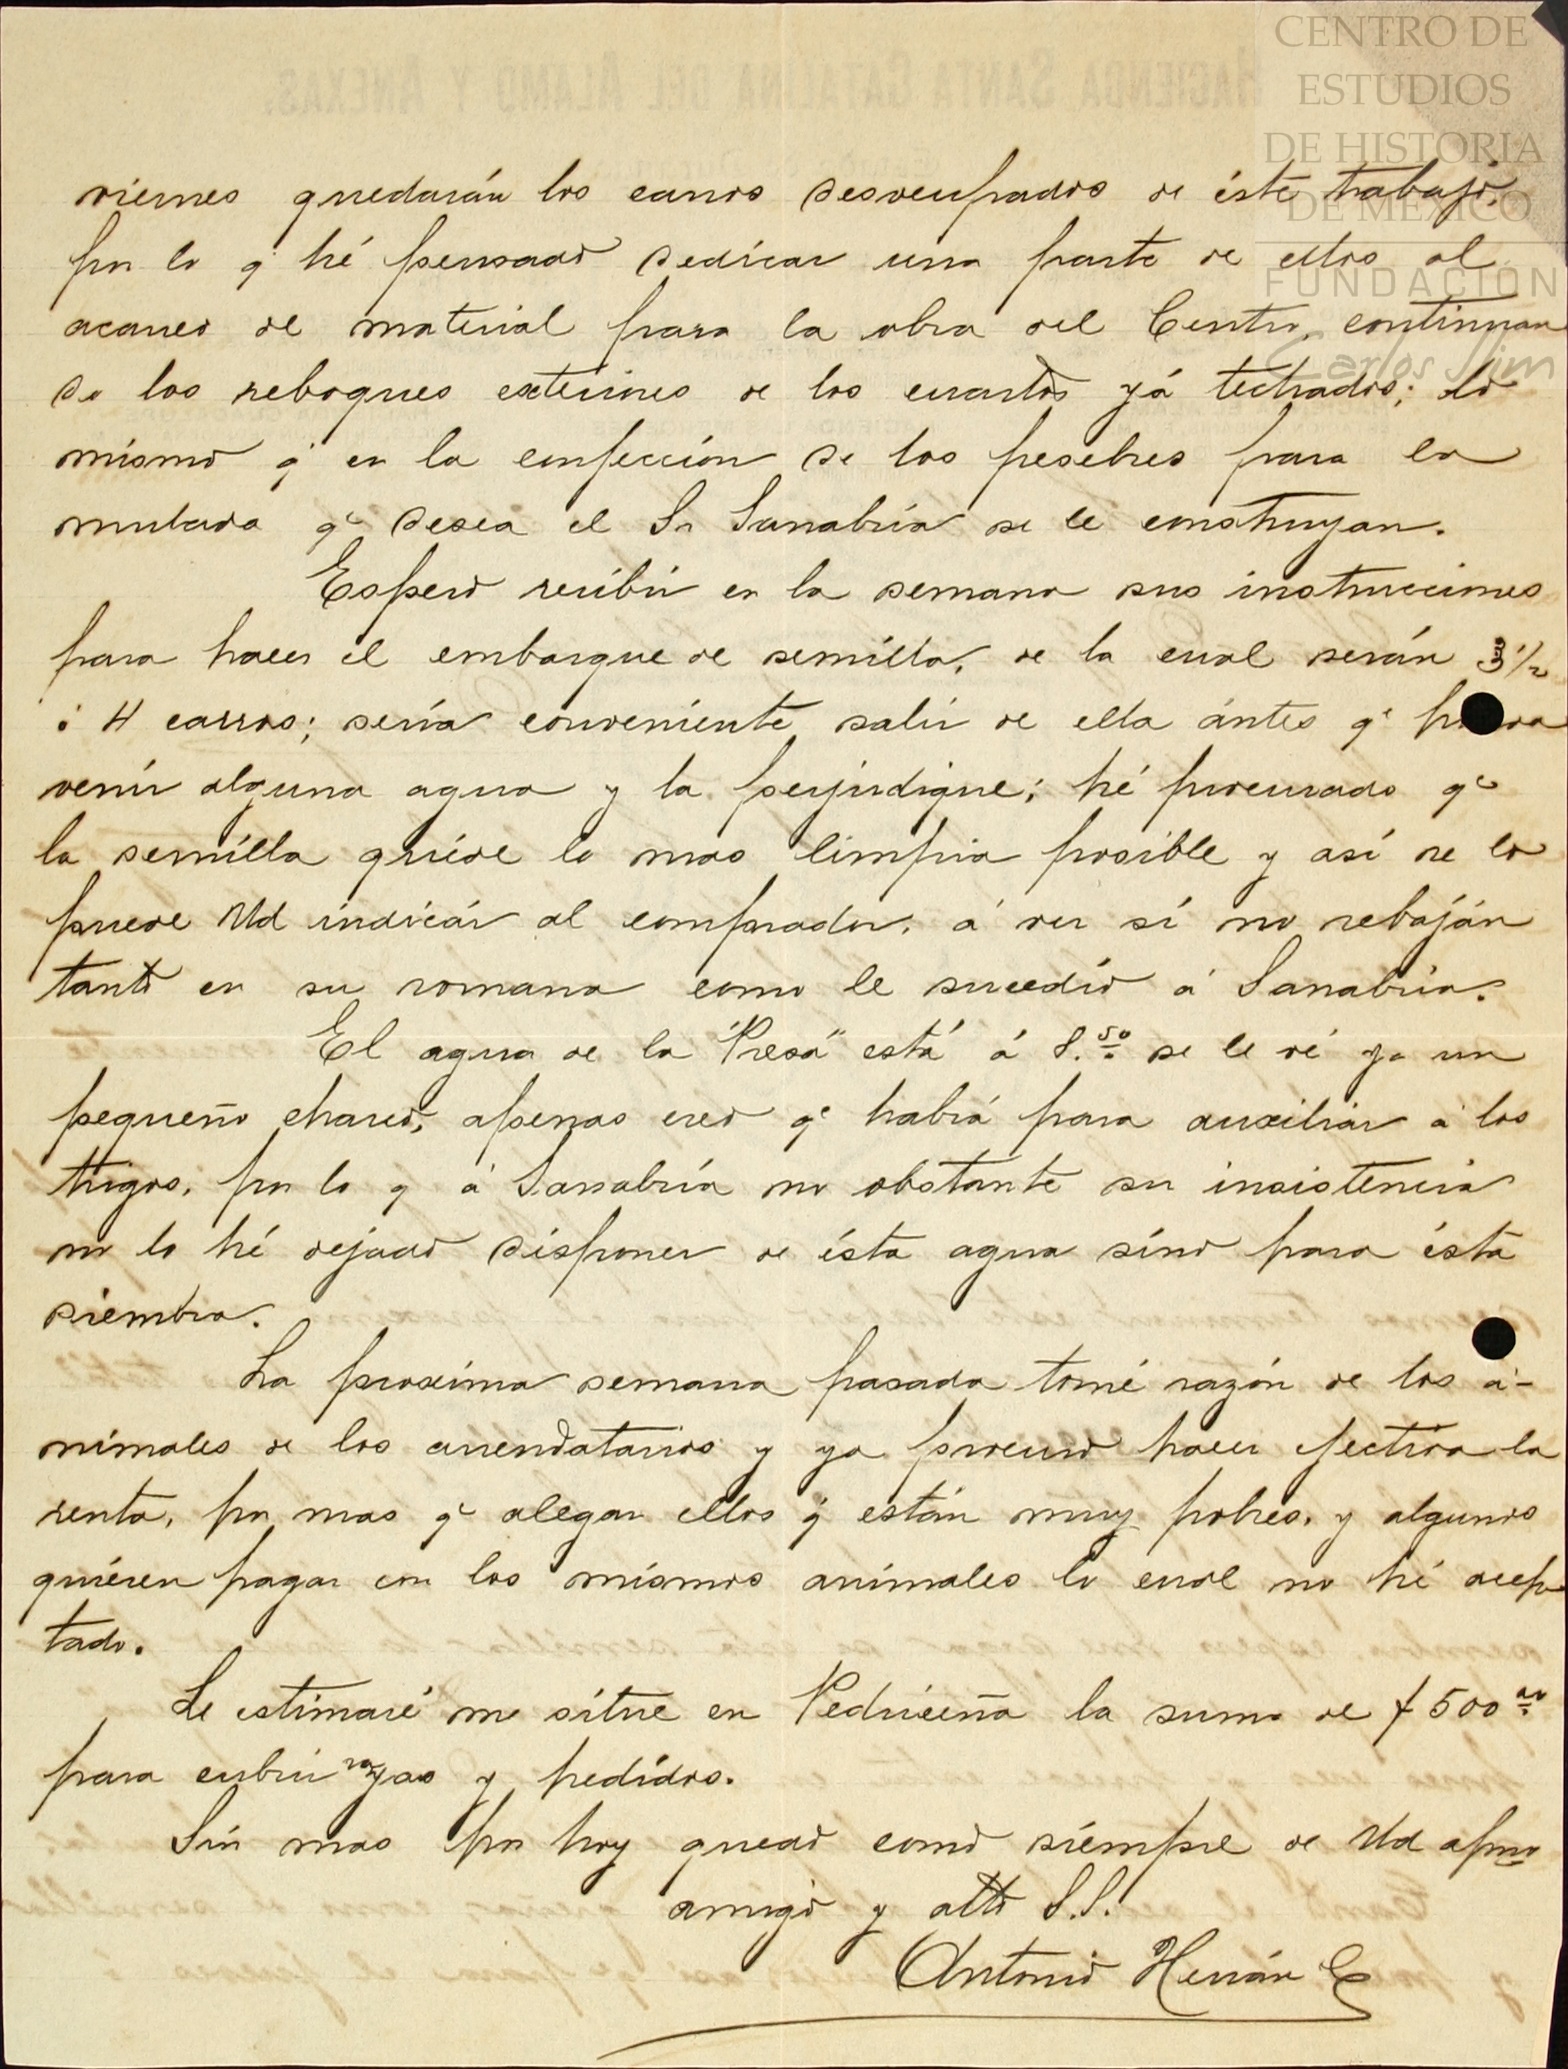 CENTRO DE
ESTUDIOS
DE HISTORIA
DE MÉXICO
FUNDACIÓN
Carlos Slim
HACIENDA SANTA CATALINA DEL ALAMO Y ANEXAS.
viernes quedarán los carros desocupados de éste trabajo,
por lo q' hé pensado dedicar una parte de ellos al
acarreo de material para la obra del Centro, continuan
do los reboques exteriores de los cuartos yá techados; lo
mismo q' en la confección de los pesebres para la
mulada qe desea el Sr Sanabria se le construyan.
Espero recibir en la semana sus instrucciones
para hacer el embarque de semilla, de la cual serán 3 1/2
ó 4 carros; sería conveniente salir de ella ántes qe
venir alguna agua y la perjudique; hé procurado qe
la semilla quéde lo mas limpia posible y así se lo
puede Ud indicár al comprador, á ver sí no rebaján
tanto en su romana como le sucedió á Sanabria.
El agua de la "Presa" está á 8.50 se le vé ya un
pequeño charco, apenas creo qe habrá para auxiliar á los
trigos, por lo q á Sanabria no obstante su insistencia
no lo hé dejado disponer de ésta agua sínó para ésta
siembra.
La proxima semana pasada tomé razón de los á-
nimales de los arrendatarios y ya procuro hacer efectiva la
renta, por mas qe alegan ellos q' están muy pobres, y algunos
quiéren pagar con los mismos animales lo cual no hé acep
tado.
Le estimaré me sitúe en Pedriceña la suma de $500 00
para cubrir rayas y pedidos.
Sin mas por hoy quedo como siémpre de Ud afmo
amigo y atto S.S.
Antonio Herrán C